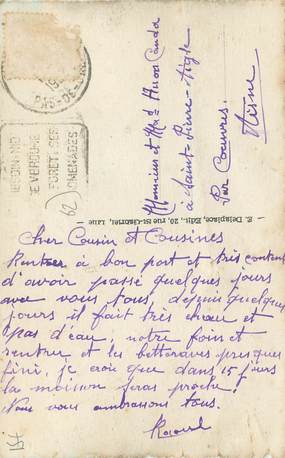 Cher Cousin et Cousines
Rentrer à bon port et très content
d'avoir passé quelques jours
avec vous tous, depuis quelques
jours il fait très chau et
pas d'eau, notre foin et
rentrer et les betteraves presques
fini, je crois que dans 15 jours
la moisson seras proche!
Nous vous embrassons tous.
Raoul
Monsieur et Mad Huon Canda
à Saint-Pierre-Aigle
Par Cœuvres.
Aisne
E. Delaplace, Edit., 20, rue St-Gabriel, Lille
DE VERDURE
FORET SES
PROMENADES
(62)
PAS-DE-C